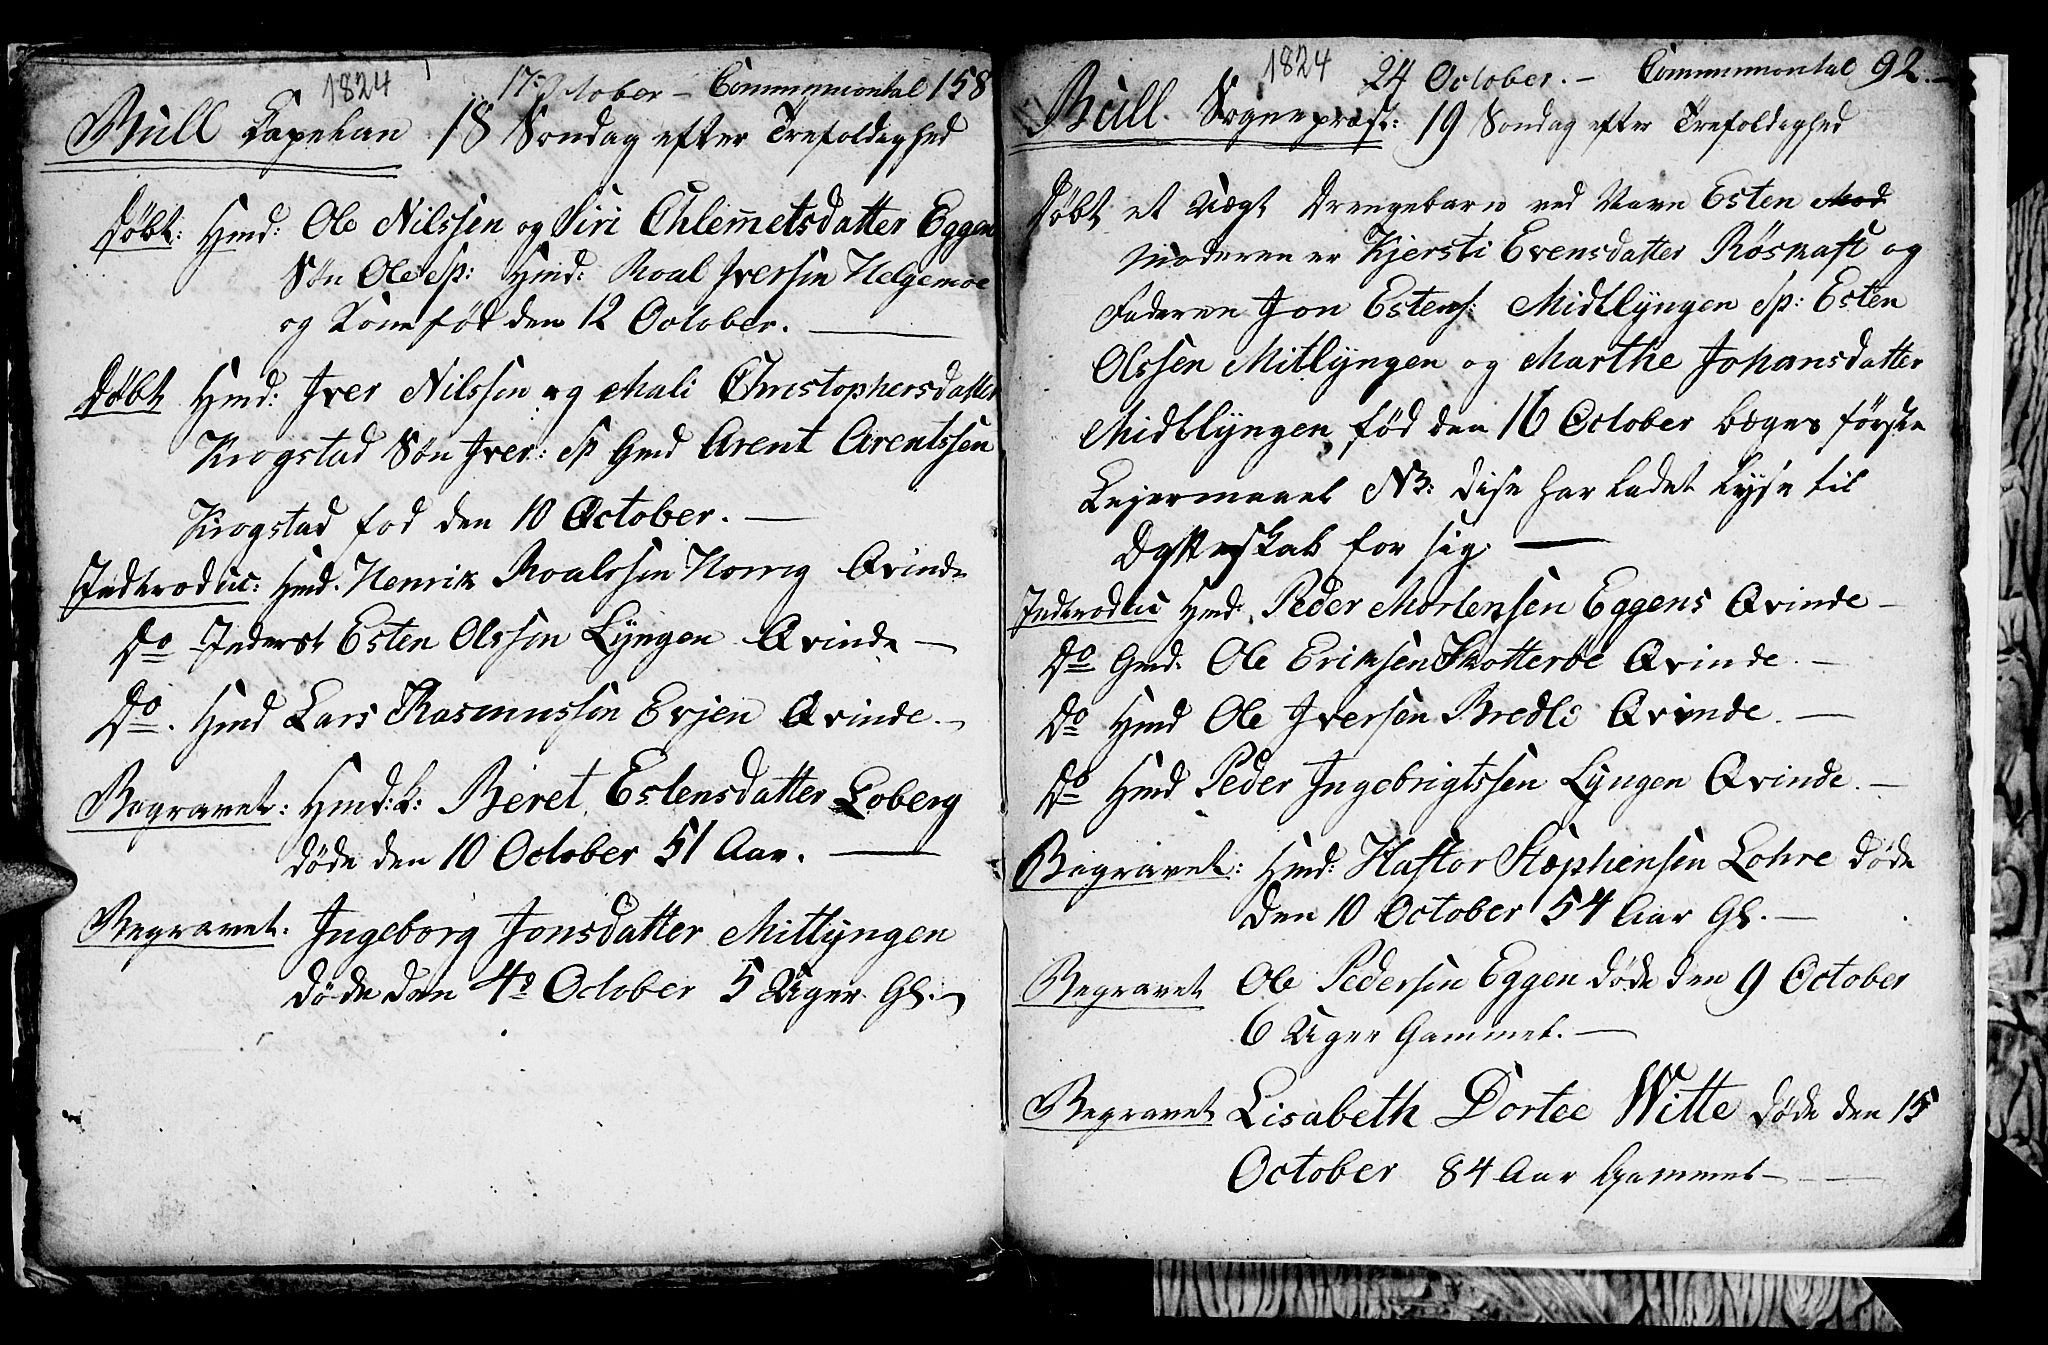 1824 17 October – Communicantal 158
Bull Capelan 18 Søndag efter Trefoldighed
Døbt: Hmd: Ole Nilssen og Siri Chlemetsdatter Eggen
Søn Ole Sp: Hmd: Roal Iversen Helgemoe
og Kone fød den 12 October. —
Døbt Hmd: Iver Nilssen og Mali Christophersdatter
Krogstad Søn Iver: Sp Gmd Arent Arentssen
Krogstad fød den 10 October. —
Indtroduc: Hmd. Henrik Roalssen Qvinde
Do Inderst Esten Olssen Lyngen Qvinde —
Do. Hmd Lars Rasmussen Evjen Qvinde. —
Begravet: Hmd: k: Beret Estensdatter Loberg
døde den 10 October 51 Aar. —
Begravet. Ingeborg Jonsdatter Mitlyngen
døde den 4de October 5 Uger Gl. —
1824 24 October. – Communicantal 92. —
Bull. Sognepræst: 19 Søndag efter Trefoldighed
Døbt et Uægt Drengebarn ved Navn Esten Mod
Moderen er Kjersti Evensdatter Røsnast og
Faderen Jon Estens: Midtlyngen Sp: Esten
Olssen Mitlyngen og Marthe Johansdatter
Midtlyngen, fød den 16 October begges første
Lejermaael NB: disse har ladet lyse til
Ægteskab for sig. —
Indtroduc Hmd. Peder Mortensen Eggens Qvinde —
Do Gmd. Ole Eriksen Skotteroe Qvinde. —
Do Hmd Ole Iversen Bredli Qvinde. —
Do Hmd Peder Ingebrigtssen Lyngen Qvinde. —
Begravet: Hmd: Hastor Stephensen Lohre døde
den 10 October 54 Aar Gl. —
Begravet Ole Pedersen Eggen døde den 9 October
6 Uger Gammel. —
Begravet Lisabeth Dortee Witte døde den 15
October 84 Aar Gammel —